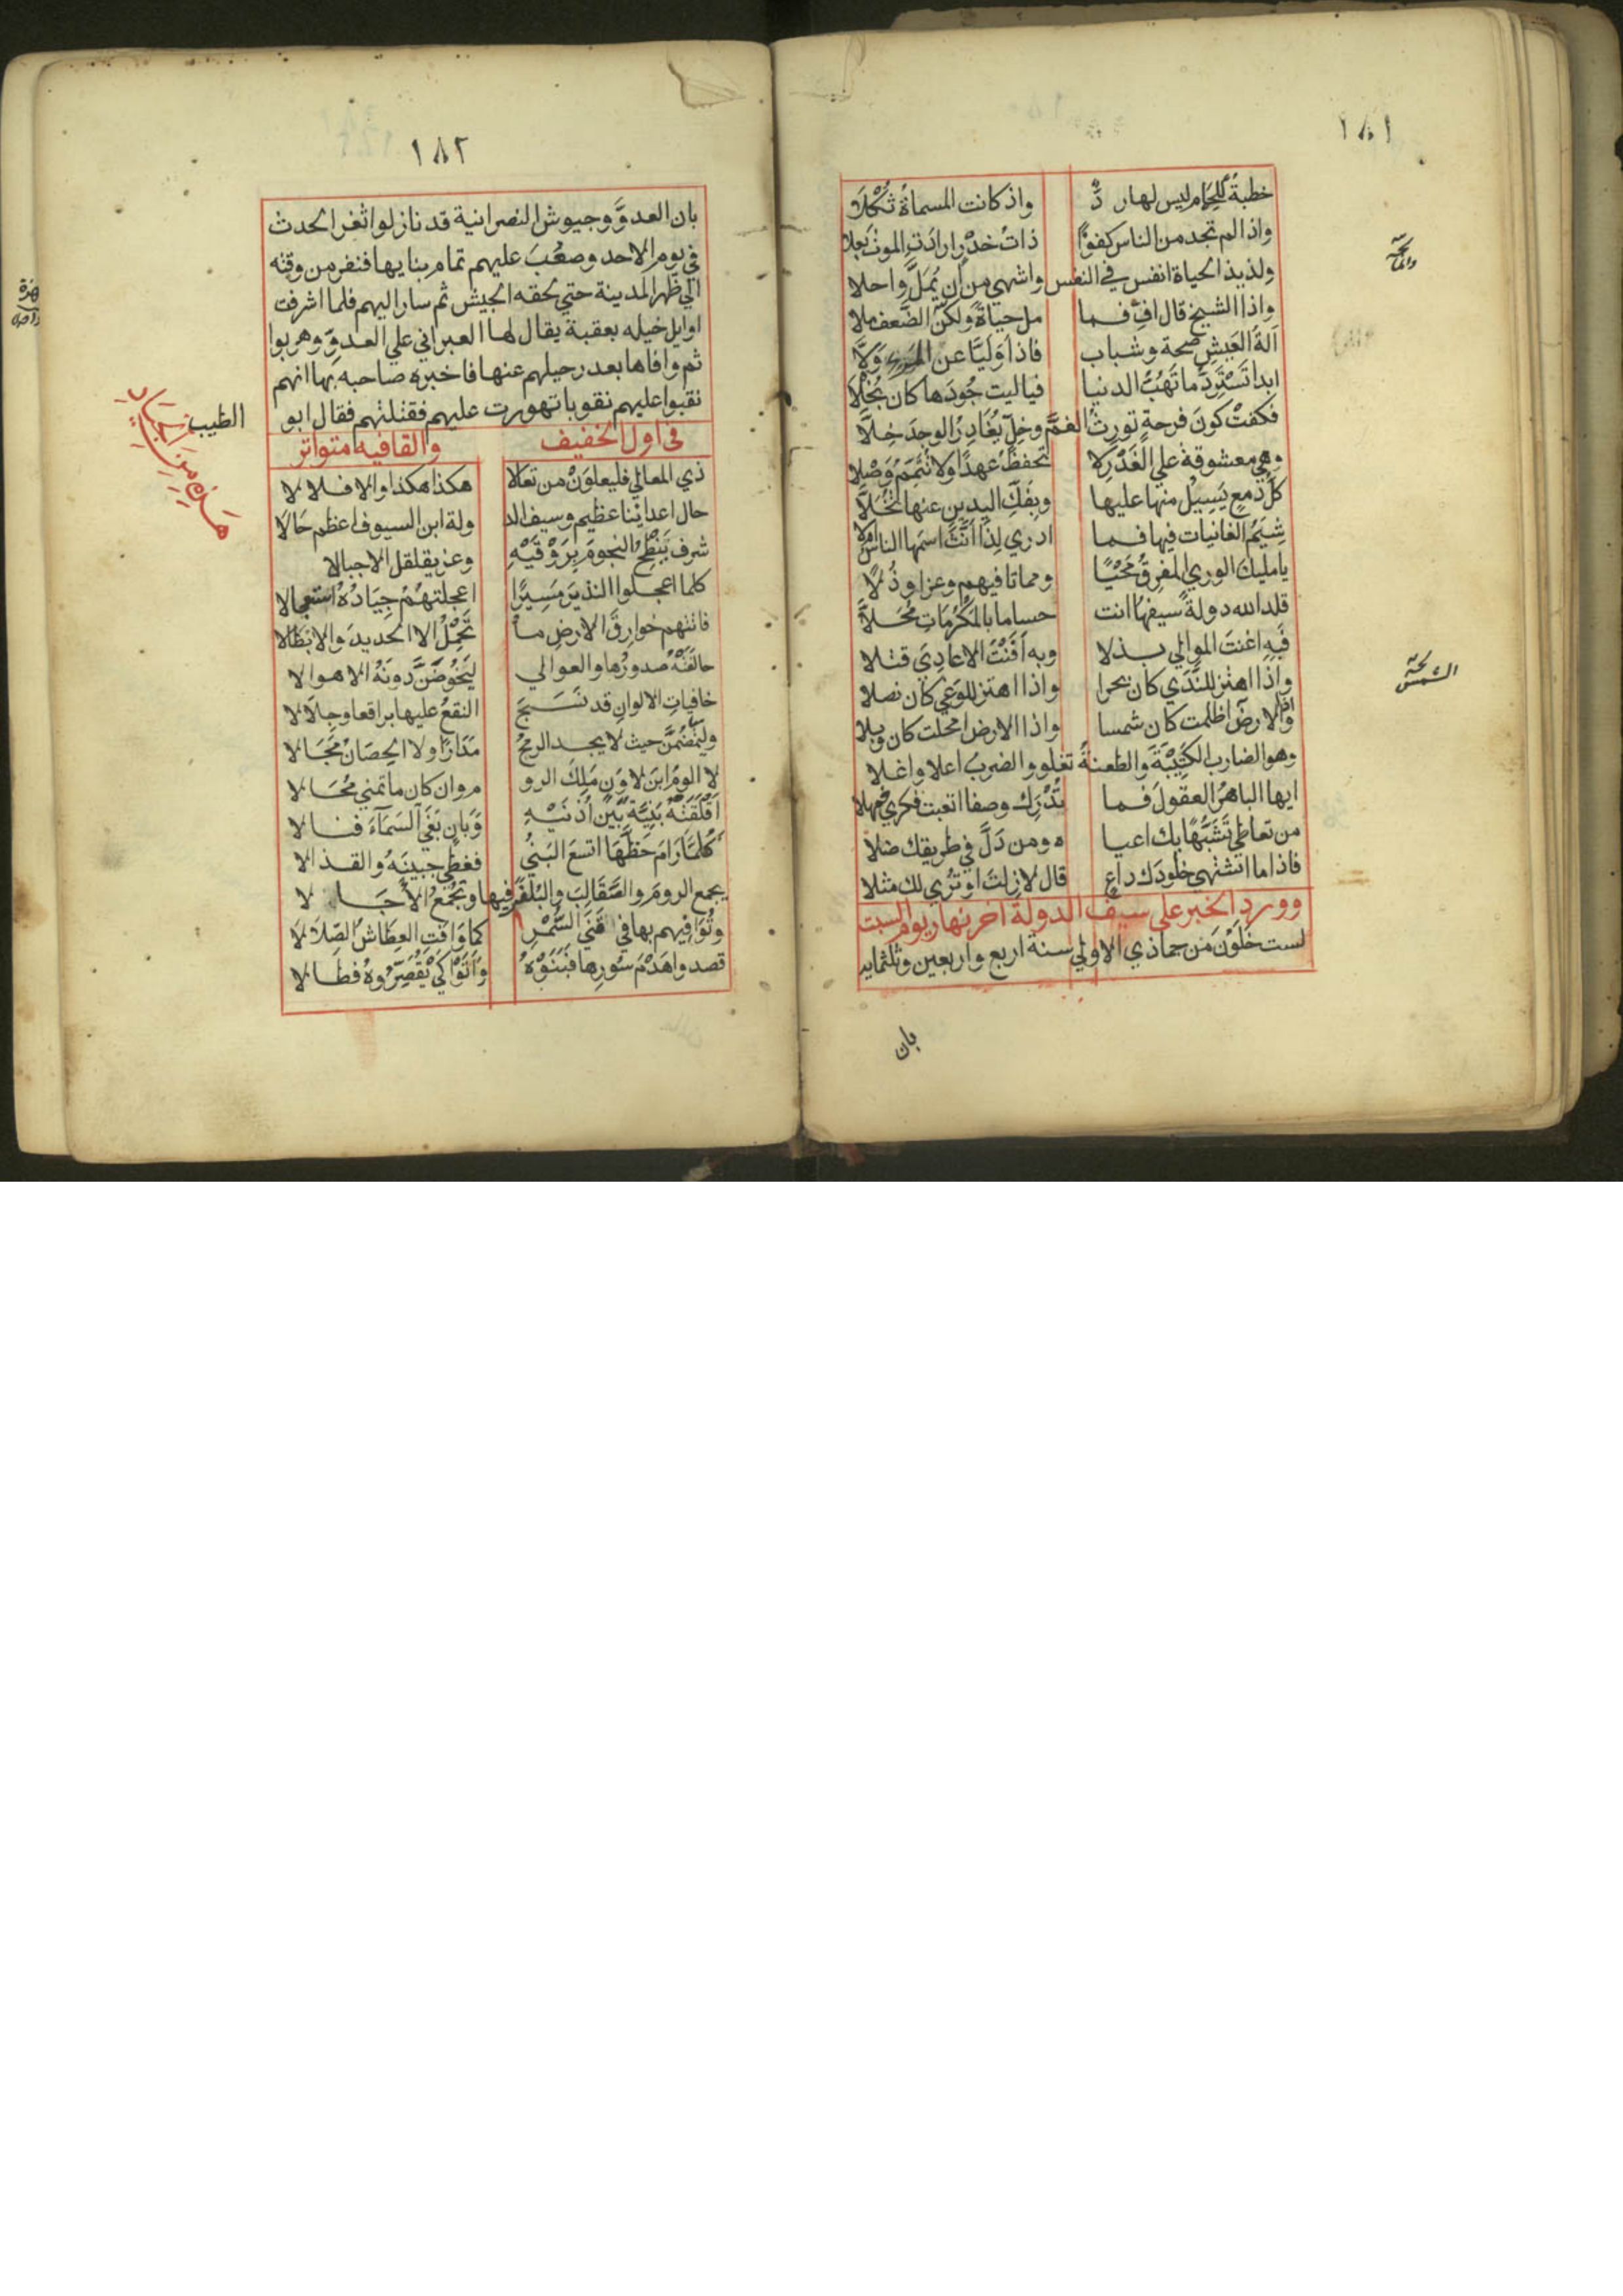 ١٨١
خطبة للحمام ليس لها رد واذ كانت المسماة ثكلا
واذا لم تجد من الناس كفوا ذات خدر ارادت الموت بعلا
ولذيذ الحياة انفس في النفس واشهي من ان يمل واحلا
واذا الشيخ قال اف فما مل حياة ولكن الضعف ملا
آلة العيش صحة وشباب فاذا وليا عن المرء ولا
ابدا تسترد ما تهب الدنيا فيا ليت جودها كان بخلا
فكفت كون فرحة تورث الغم وخل يغادر الوجد خلا
وهي معشوقة علي الغدر لا تحفظ عهدا ولا تتمم وصلا
كل دمع يسيل منها عليها وبفك اليدين عنها تخلا
شيم الغانيات فيها فما ادري لذا انث اسمها الناس ام لا
يا مليك الوري المفرق محيا ومماتا فيهم وعزا وذلا
قلد الله دولة سيفها انت حساما بالمكرمات محلا
فبه اغنت الموالي بذلا وبه افنت الاعادي قتلا
واذا اهتز للندي كان بحرا واذا اهتز للوغي كان نصلا
واذا الارض اظلمت كان شمسا واذا الارض امحلت كان وبلا
وهو الضارب الكتيبة والطعنة تغلو والضرب اعلا واغلا
ايها الباهر العقول فما تدرك وصفا اتعبت فكري فمهلا
من تعاطي تشبها بك اعياه ومن دل في طريقك ضلا
فاذا ما اشتهي خلودك داع قال لا زلت او تري لك مثلا
وورد الخبر علي سيف الدولة اخر نهار يوم السبت
لست خلون من جماذي الاولي سنة اربع واربعين وثلثمايه
بان
الشمس
١٨٢
بان العدو وجيوش النصرانية قد نازلوا ثغر الحدث
في يوم الاحد وصعب عليهم تمام بنايها فنفر من وقته
الي ظهر المدينة حتي لحقه الجيش ثم سار اليهم فلما اشرفت
اوايل خيله بعقبة يقال لها العبراني علي العدو وهربوا
ثم وافاها بعد رحيلهم عنها فاخبره صاحبه بها انهم
نقبوا عليهم نقوبا تهورت عليهم فقتلتهم فقال ابو
الطيب
في اول الخفيف والقافيه متواتر
ذي المعالي فليعلون من تعالا هكذا هكذا والا فلا لا
حال اعدائنا عظيم وسيف الد ولة ابن السيوف اعظم حالا
شرف ينطح النجوم بروقيه وعز يقلقل الاجبالا
كلما اعجلوا النذير مسيرا اعجلتهم جياده استعجالا
فاتتهم خوارق الارض ما تحمل الا الحديد والابطالا
حالفته صدورها والعوالي ليخوضن دونه الاهوالا
خافيات الالوان قد نسج النقع عليها براقعا وجلالا
وليمضن حيث لا يجد الرمح مدارا ولا الحصان مجالا
لا الوم ابن لاون ملك الرو م وان كان ما تمني محالا
اقلقته بنية بين اذنيه وبان بغي السماء فنالا
كلما رام حظها اتسع البني فغطي جبينه والقذالا
يجمع الروم والصقالب والبلغر فيها وتجمع الاجالا
وتوافيهم بها في قني السمر كما وافت العطاش الصلالا
قصدوا هدم سورها فبنوه واتوا كي يقصروه فطالا
هذه من الجياد